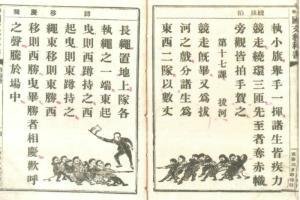 執小旗舉手一揮諸生皆疾力
競走繞環三匝先至者奪赤幟
旁觀皆拍手賀之
第十七課 拔河
競走既畢又為拔
河之戲分諸生為
東西二隊以數丈
蹲 移 慶 騰
長繩置地上隊各
執繩之一端東起
曳則西蹲持之西
起曳則東蹲持之
繩東移則東勝西
移則西勝曳畢勝者相慶歡呼
之聲騰於場中